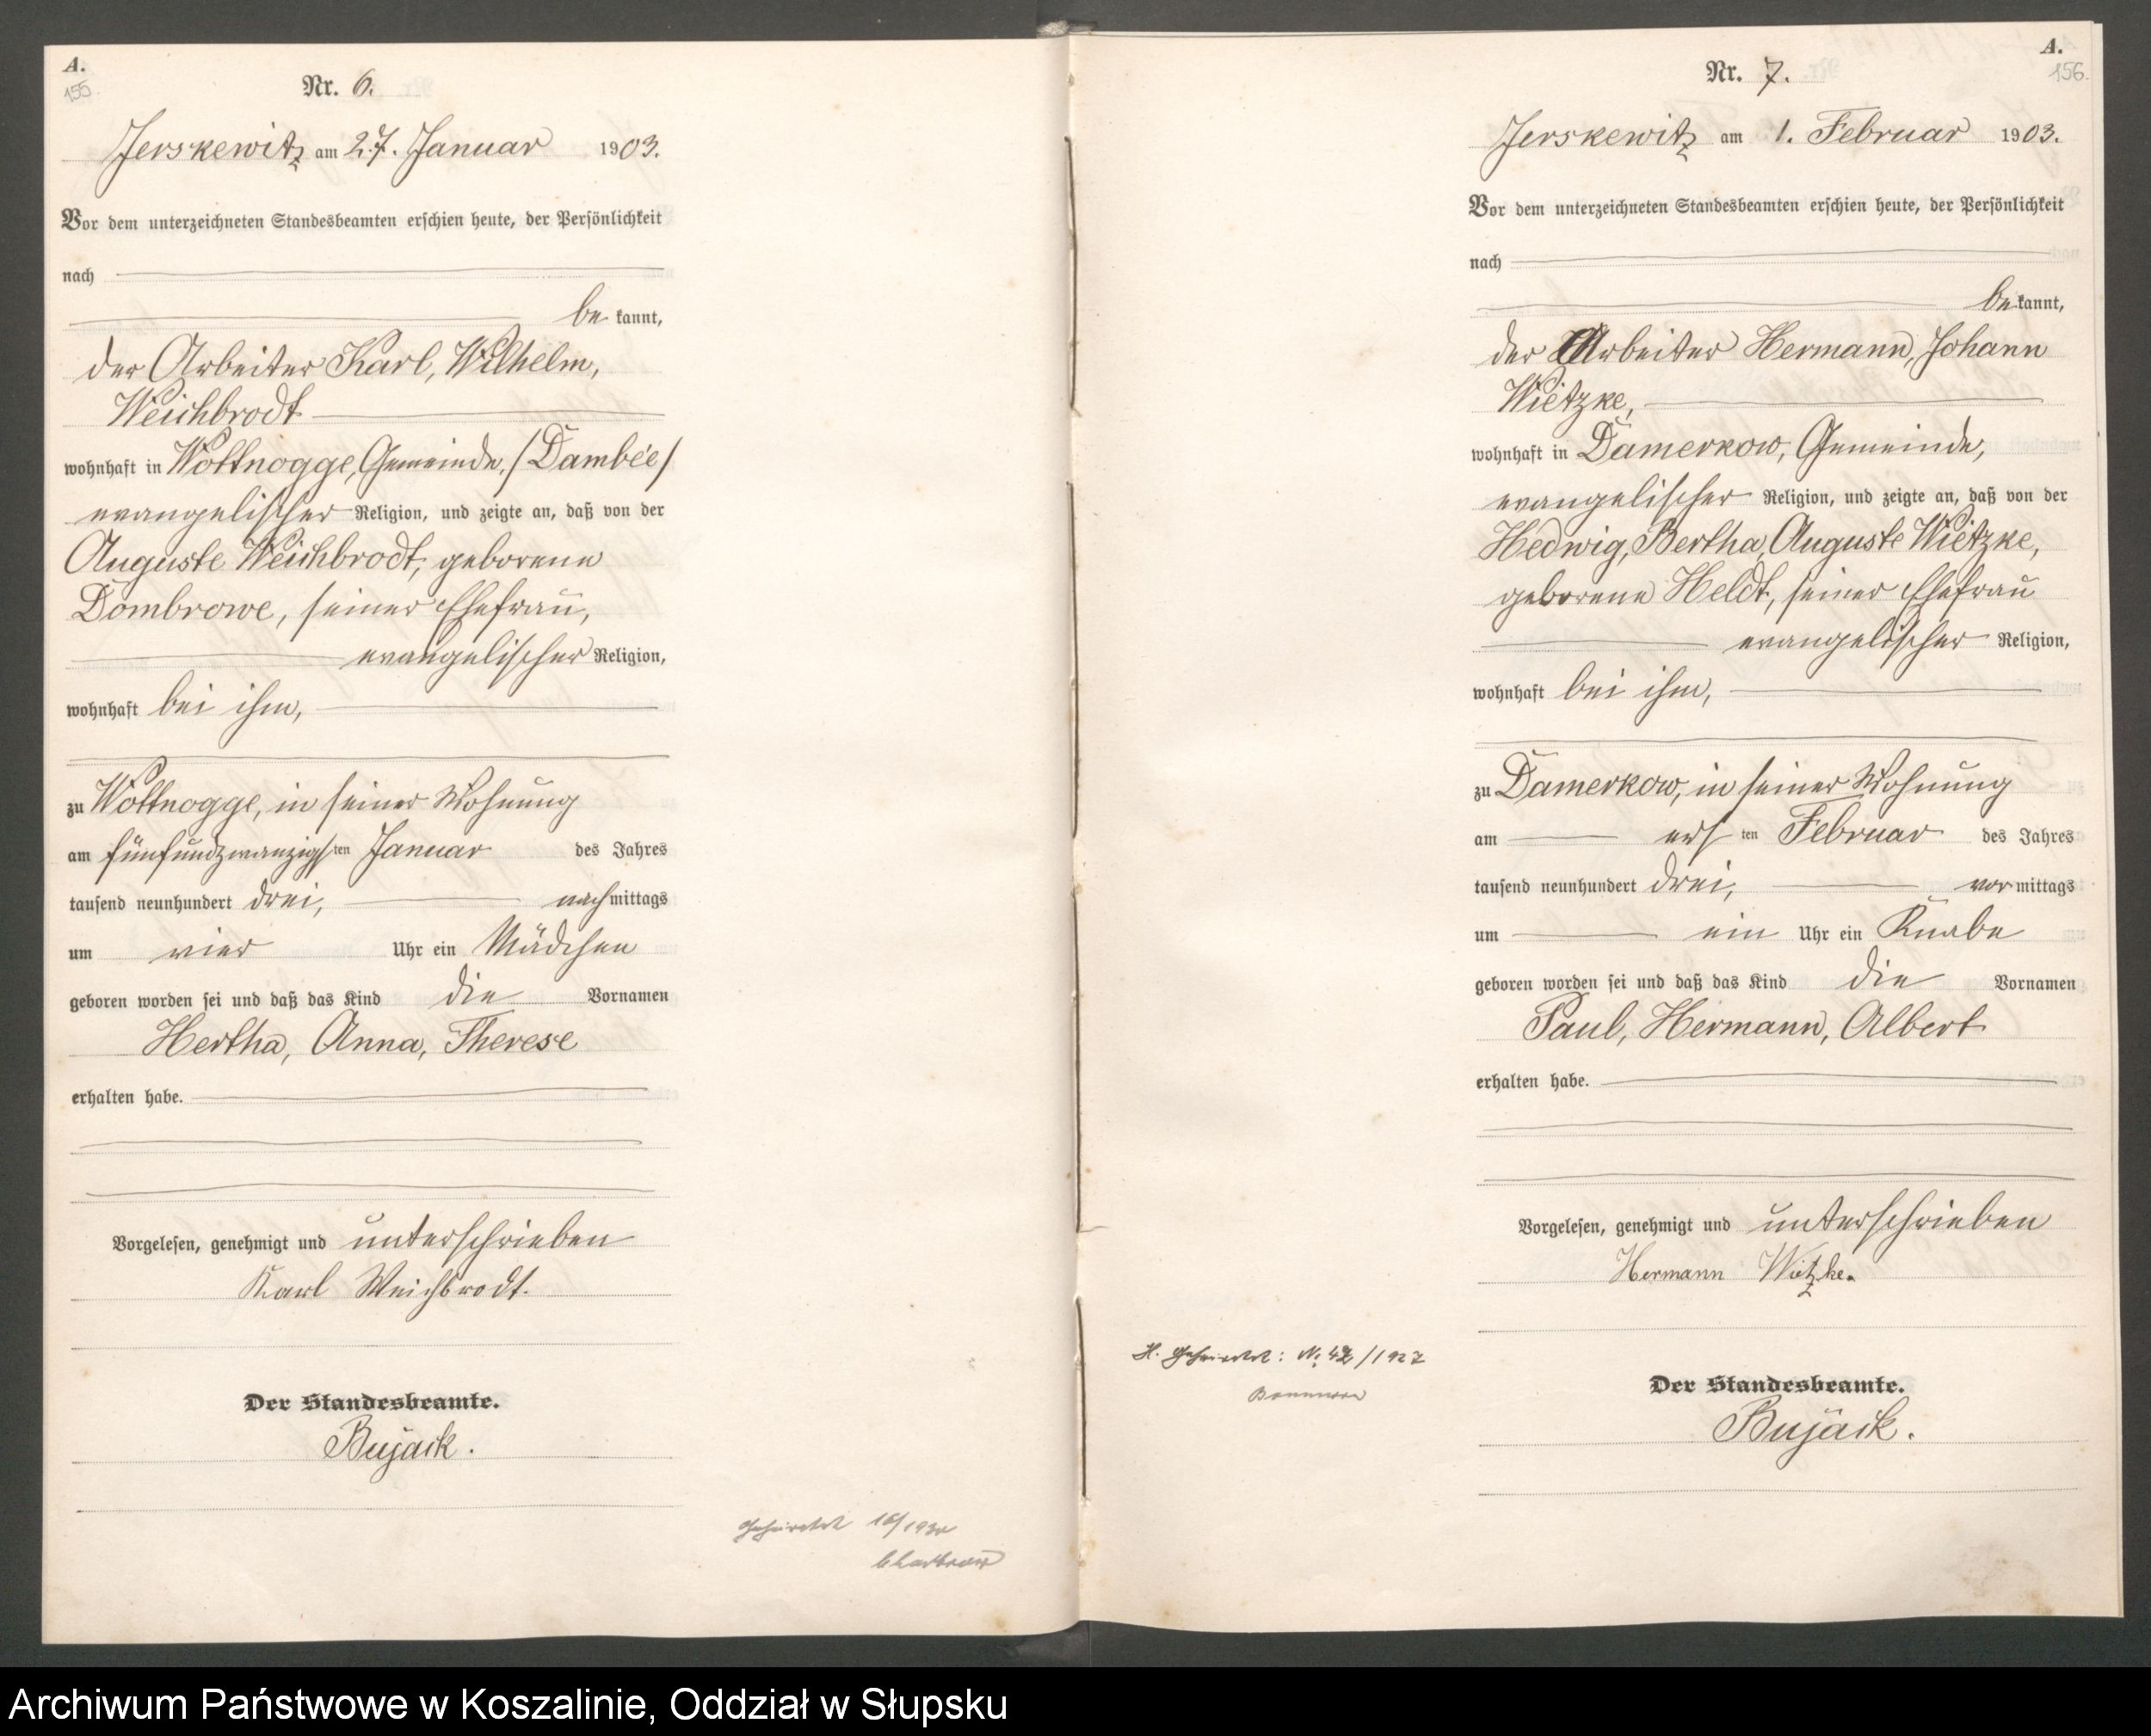 A.
155.
Nr. 6.
Jerskewitz am 27. Januar 1903.
Vor dem unterzeichneten Standesbeamten erschien heute, der Persönlichkeit
nach
be kannt,
der Arbeiter Karl, Wilhelm,
Weichbrodt
wohnhaft in Wottnogge, Gemeinde, /Dambée/
evangelischer Religion, und zeigte an, daß von der
Auguste Weichbrodt, geborene
Dombrowe, seiner Ehefrau,
evangelischer Religion,
wohnhaft bei ihm,
zu Wottnogge, in seiner Wohnung
am fünfundzwanzigsten Januar des Jahres
tausend neunhundert drei, nachmittags
um vier Uhr ein Mädchen
geboren worden sei und daß das Kind die Vornamen
Hertha, Anna, Therese
erhalten habe.
Vorgelesen, genehmigt und unterschrieben
Karl Weichbrodt.
Der Standesbeamte.
Bujack.
Geheiratet 16/1930
A.
156.
Nr. 7.
Jerskewitz am 1. Februar 1903.
Vor dem unterzeichneten Standesbeamten erschien heute, der Persönlichkeit
nach
be kannt,
der Arbeiter Hermann, Johann
Wietzke,
wohnhaft in Damerkow, Gemeinde,
evangelischer Religion, und zeigte an, daß von der
Hedwig, Bertha, Auguste Wietzke,
geborene Heldt, seiner Ehefrau
evangelischer Religion,
wohnhaft bei ihm,
zu Damerkow, in seiner Wohnung
am ersten Februar des Jahres
tausend neunhundert drei, vormittags
um ein Uhr ein Knabe
geboren worden sei und daß das Kind die Vornamen
Paul, Hermann, Albert
erhalten habe.
Vorgelesen, genehmigt und unterschrieben
Hermann Wietzke.
H. Geheiratet: Nr. 42/1927
Der Standesbeamte.
Bujack.
Archiwum Państwowe w Koszalinie, Oddział w Słupsku